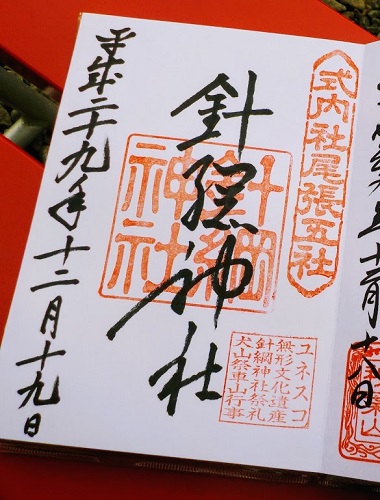 式内社尾張五社
針綱神社
針綱
神社
ユネスコ
無形文化遺産
針綱神社祭礼
犬山祭車山行事
平成二十九年十二月十九日